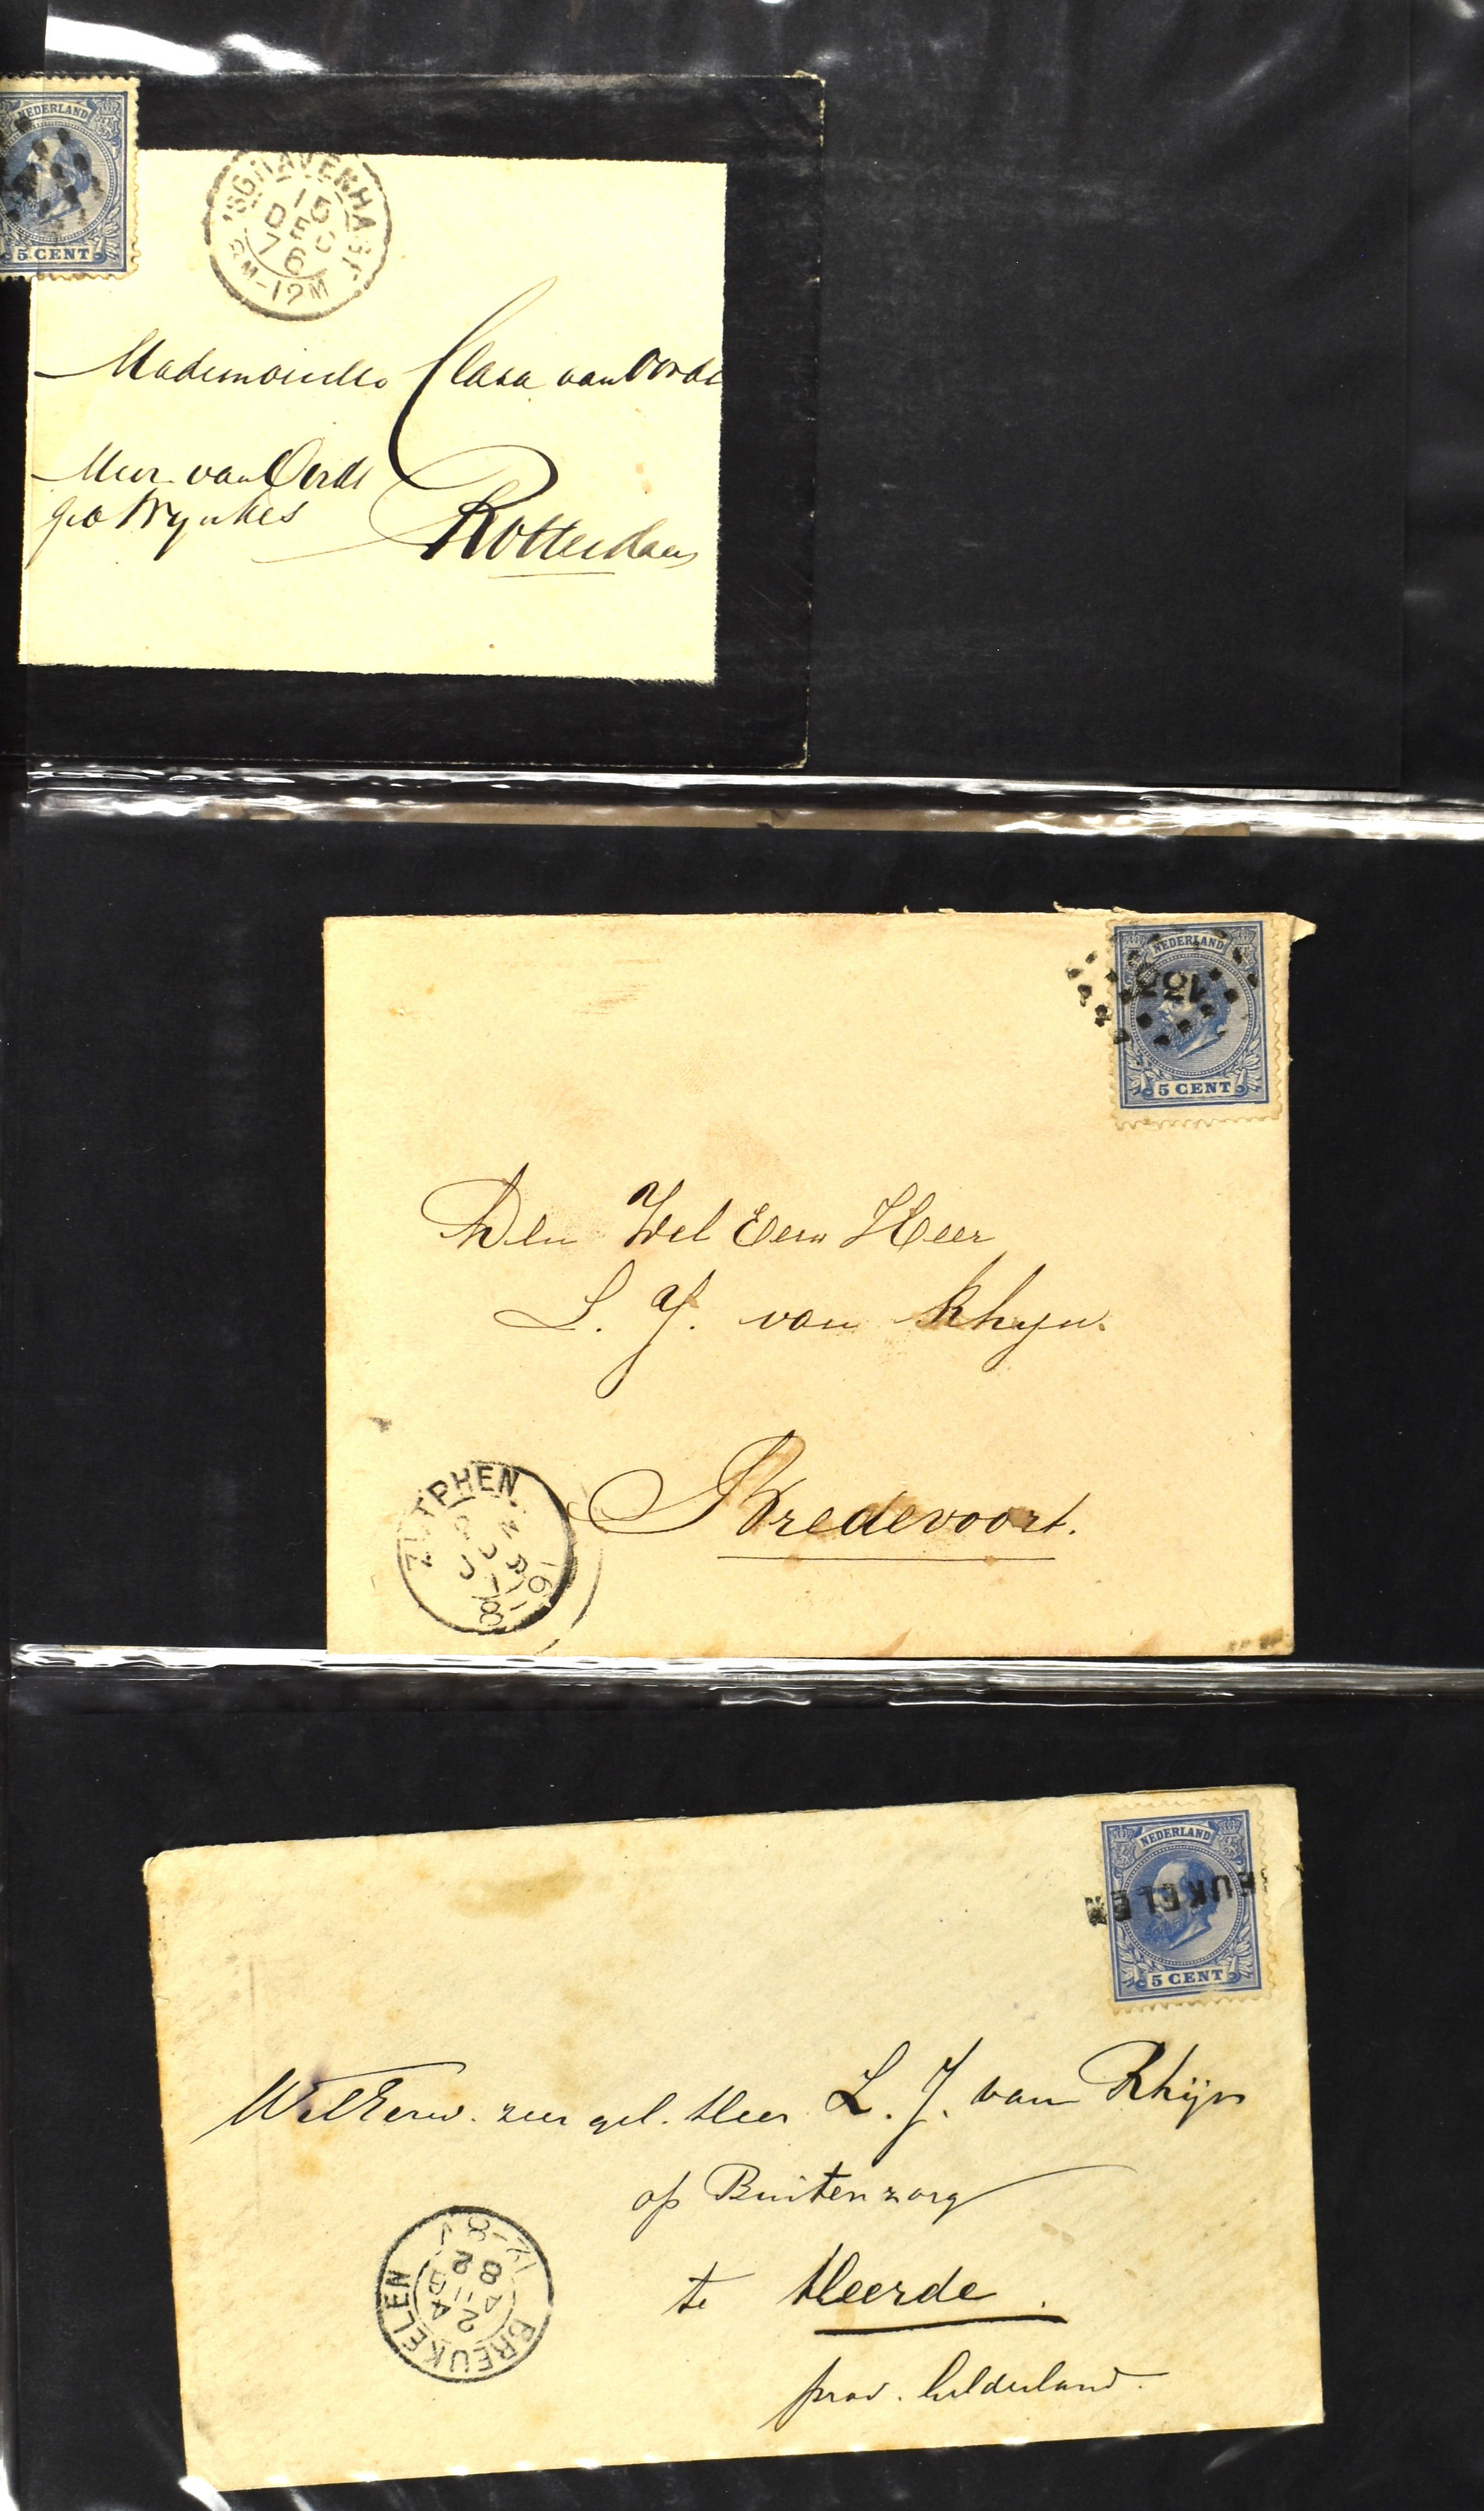 NEDERLAND
5 CENT
'SGRAVENHAGE
15
DEC
76
Mademoiselle Clara van Oordt
van Oordt
Rotterdam
NEDERLAND
5 CENT
Den Wel Eerw Heer
L. J. van Rhyn.
Bredevoort.
ZUTPHEN
NEDERLAND
EUKELEN
5 CENT
WelEerw. zeer gel. Heer L. J. van Rhijn
op Buitenzorg
te Heerde.
prov. Gelderland.
BREUKELEN